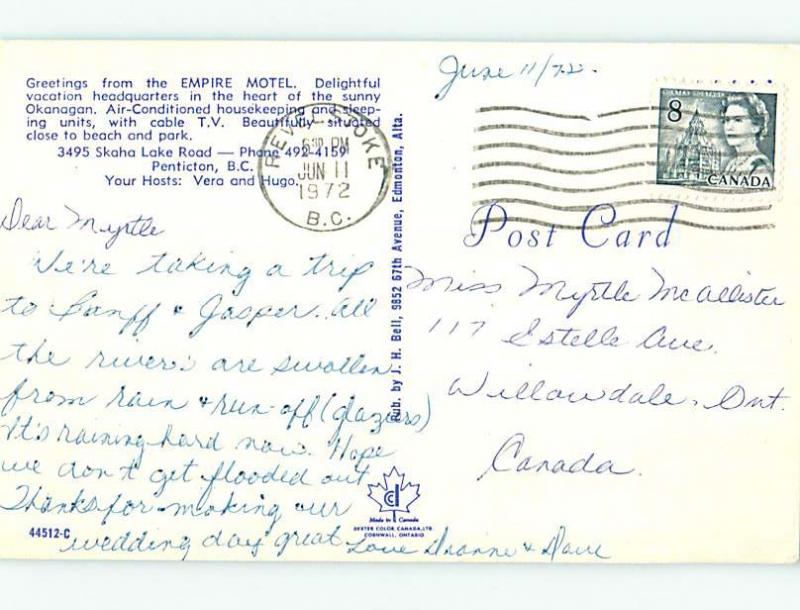 Greetings from the EMPIRE MOTEL. Delightful
vacation headquarters in the heart of the sunny
Okanagan. Air-Conditioned housekeeping and sleep-
ing units, with cable T.V. Beautifully situated
close to beach and park.
3495 Skaha Lake Road — Phone 492-4159
Penticton, B.C.
Your Hosts: Vera and Hugo.
REVELSTOKE
PM
JUN 11
1972
B.C.
June 11/72.
8
CANADA
Post Card
Dear Myrtle
We're taking a trip
to Banff & Jasper. All
the rivers are swollen
from rain & run-off (glaziers)
It's raining hard now. Hope
we don't get flooded out
Thanks for making our
wedding day great Love Dianne & Dave
Miss Myrtle McAllister
117 Estelle Ave.
Willowdale, Ont.
Canada.
Pub. by J. H. Bell, 9852 67th Avenue, Edmonton, Alta.
Made in Canada
DEXTER COLOR CANADA, LTD.
CORNWALL, ONTARIO
44512-C